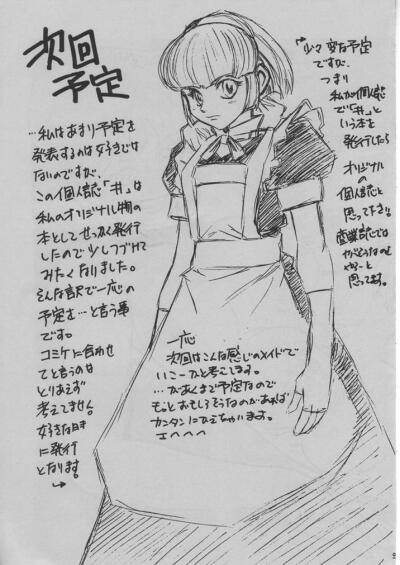 次回
予定
…私はあまり予定を
発表するのは好きでは
ないのですが、
この個人誌「井」は
私のオリジナル物の
本としてせっかく発行
したので少しつづけて
みたくなりました。
そんな訳で一応の
予定を…と言う事
です。
コミケに合わせ
てと言うのは
とりあえず
考えてません。
好きな時
に発行
となります。
→
少々変な予定
ですが、
つまり
私が個人誌
で「井」と
いう本を
発行したら
オリジナル
の
個人誌と
思って下さい。
商業誌では
思ってます。
一応
次回はこんな感じのメイドで
いこーかと考えます。
…があくまで予定なので
もっとおもしろそうなのがあれば
カンタンにかえちゃいます。
エヘヘヘヘ